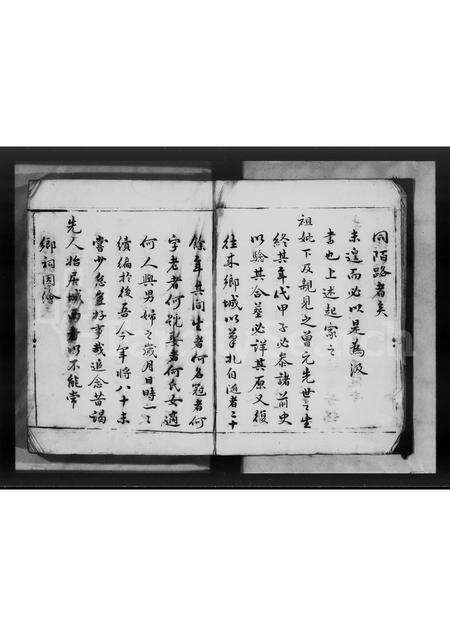 同陌路者矣
未遑而必以是為汲
書也上述起家之
祖妣下及親見之曾元先世之生
終其年代甲子必泰諸前史
以驗其合葢必詳其原又復
往来鄉城以筆札自随者二十
餘年其间生者何名冠者何
字老者何就葬者何氏女適
何人與男婦之歲月日時一之
續編於後吾今年將八十未
嘗少怠豈好事哉追念昔謁
先人怡居城西者以不能常
鄉祠因繪